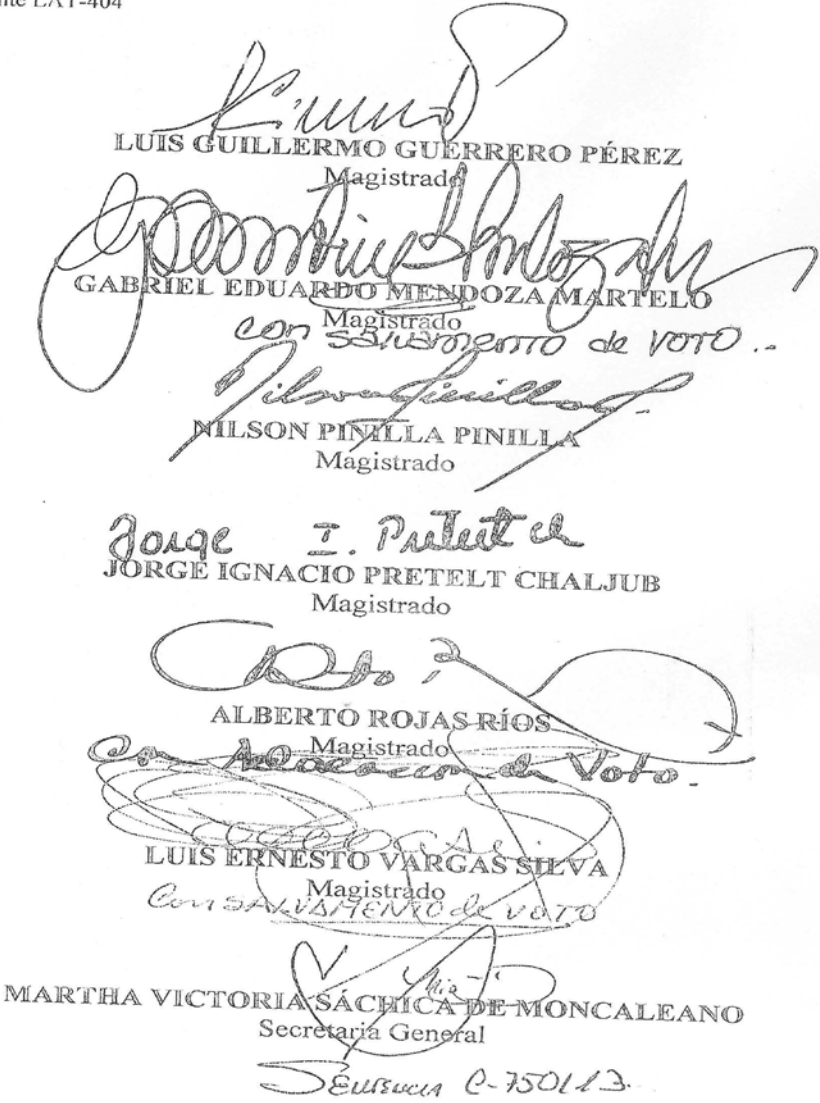 LAT-404
LUIS GUILLERMO GUERRERO PÉREZ
Magistrado
GABRIEL EDUARDO MENDOZA MARTELO
Magistrado
con salvamento de voto..
NILSON PINILLA PINILLA
Magistrado
Jorge I. Pretelt ch
JORGE IGNACIO PRETELT CHALJUB
Magistrado
ALBERTO ROJAS RÍOS
Magistrado
Con Aclaracion de Voto.
LUIS ERNESTO VARGAS SILVA
Magistrado
Con SALVAMENTO de VOTO
MARTHA VICTORIA SÁCHICA DE MONCALEANO
Secretaria General
Sentencia C-750/13.